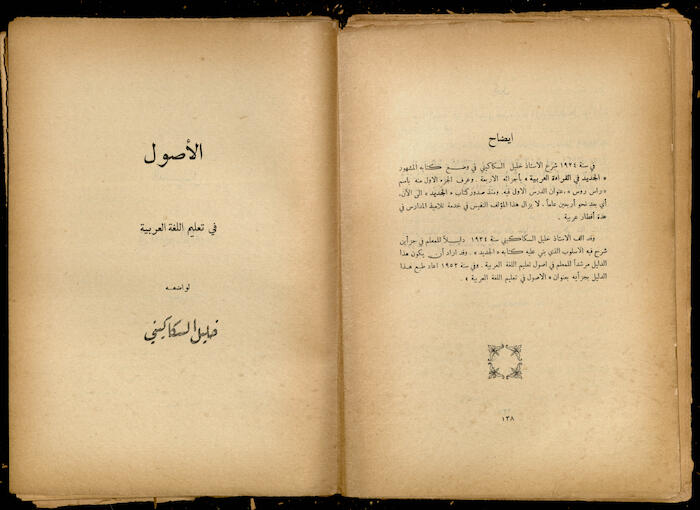 ايضاح
في سنة ١٩٢٤ شرع الاستاذ خليل السكاكيني في وضع كتابه المشهور
« الجديد في القراءة العربية » بأجزائه الاربعة . وعرف الجزء الاول منه باسم
« راس روس » ، عنوان الدرس الاول فيه . ومنذ صدور كتاب « الجديد » الى الآن،
أي بعد نحو أربعين عاماً ، لا يزال هذا المؤلف النفيس في خدمة تلاميذ المدارس في
عدة أقطار عربية .
وقد الف الاستاذ خليل السكاكيني سنة ١٩٣٤ دليلاً للمعلم في جزأين
شرح فيه الاسلوب الذي بني عليه كتابه « الجديد » . وقد اراد أن يكون هذا
الدليل مرشداً للمعلم في اصول تعليم اللغة العربية . وفي سنة ١٩٥٢ اعاد طبع هذا
الدليل بجزأيه بعنوان « الاصول في تعليم اللغة العربية » .
١٣٨
الأصول
في تعليم اللغة العربية
لواضعه
خليل السكاكيني